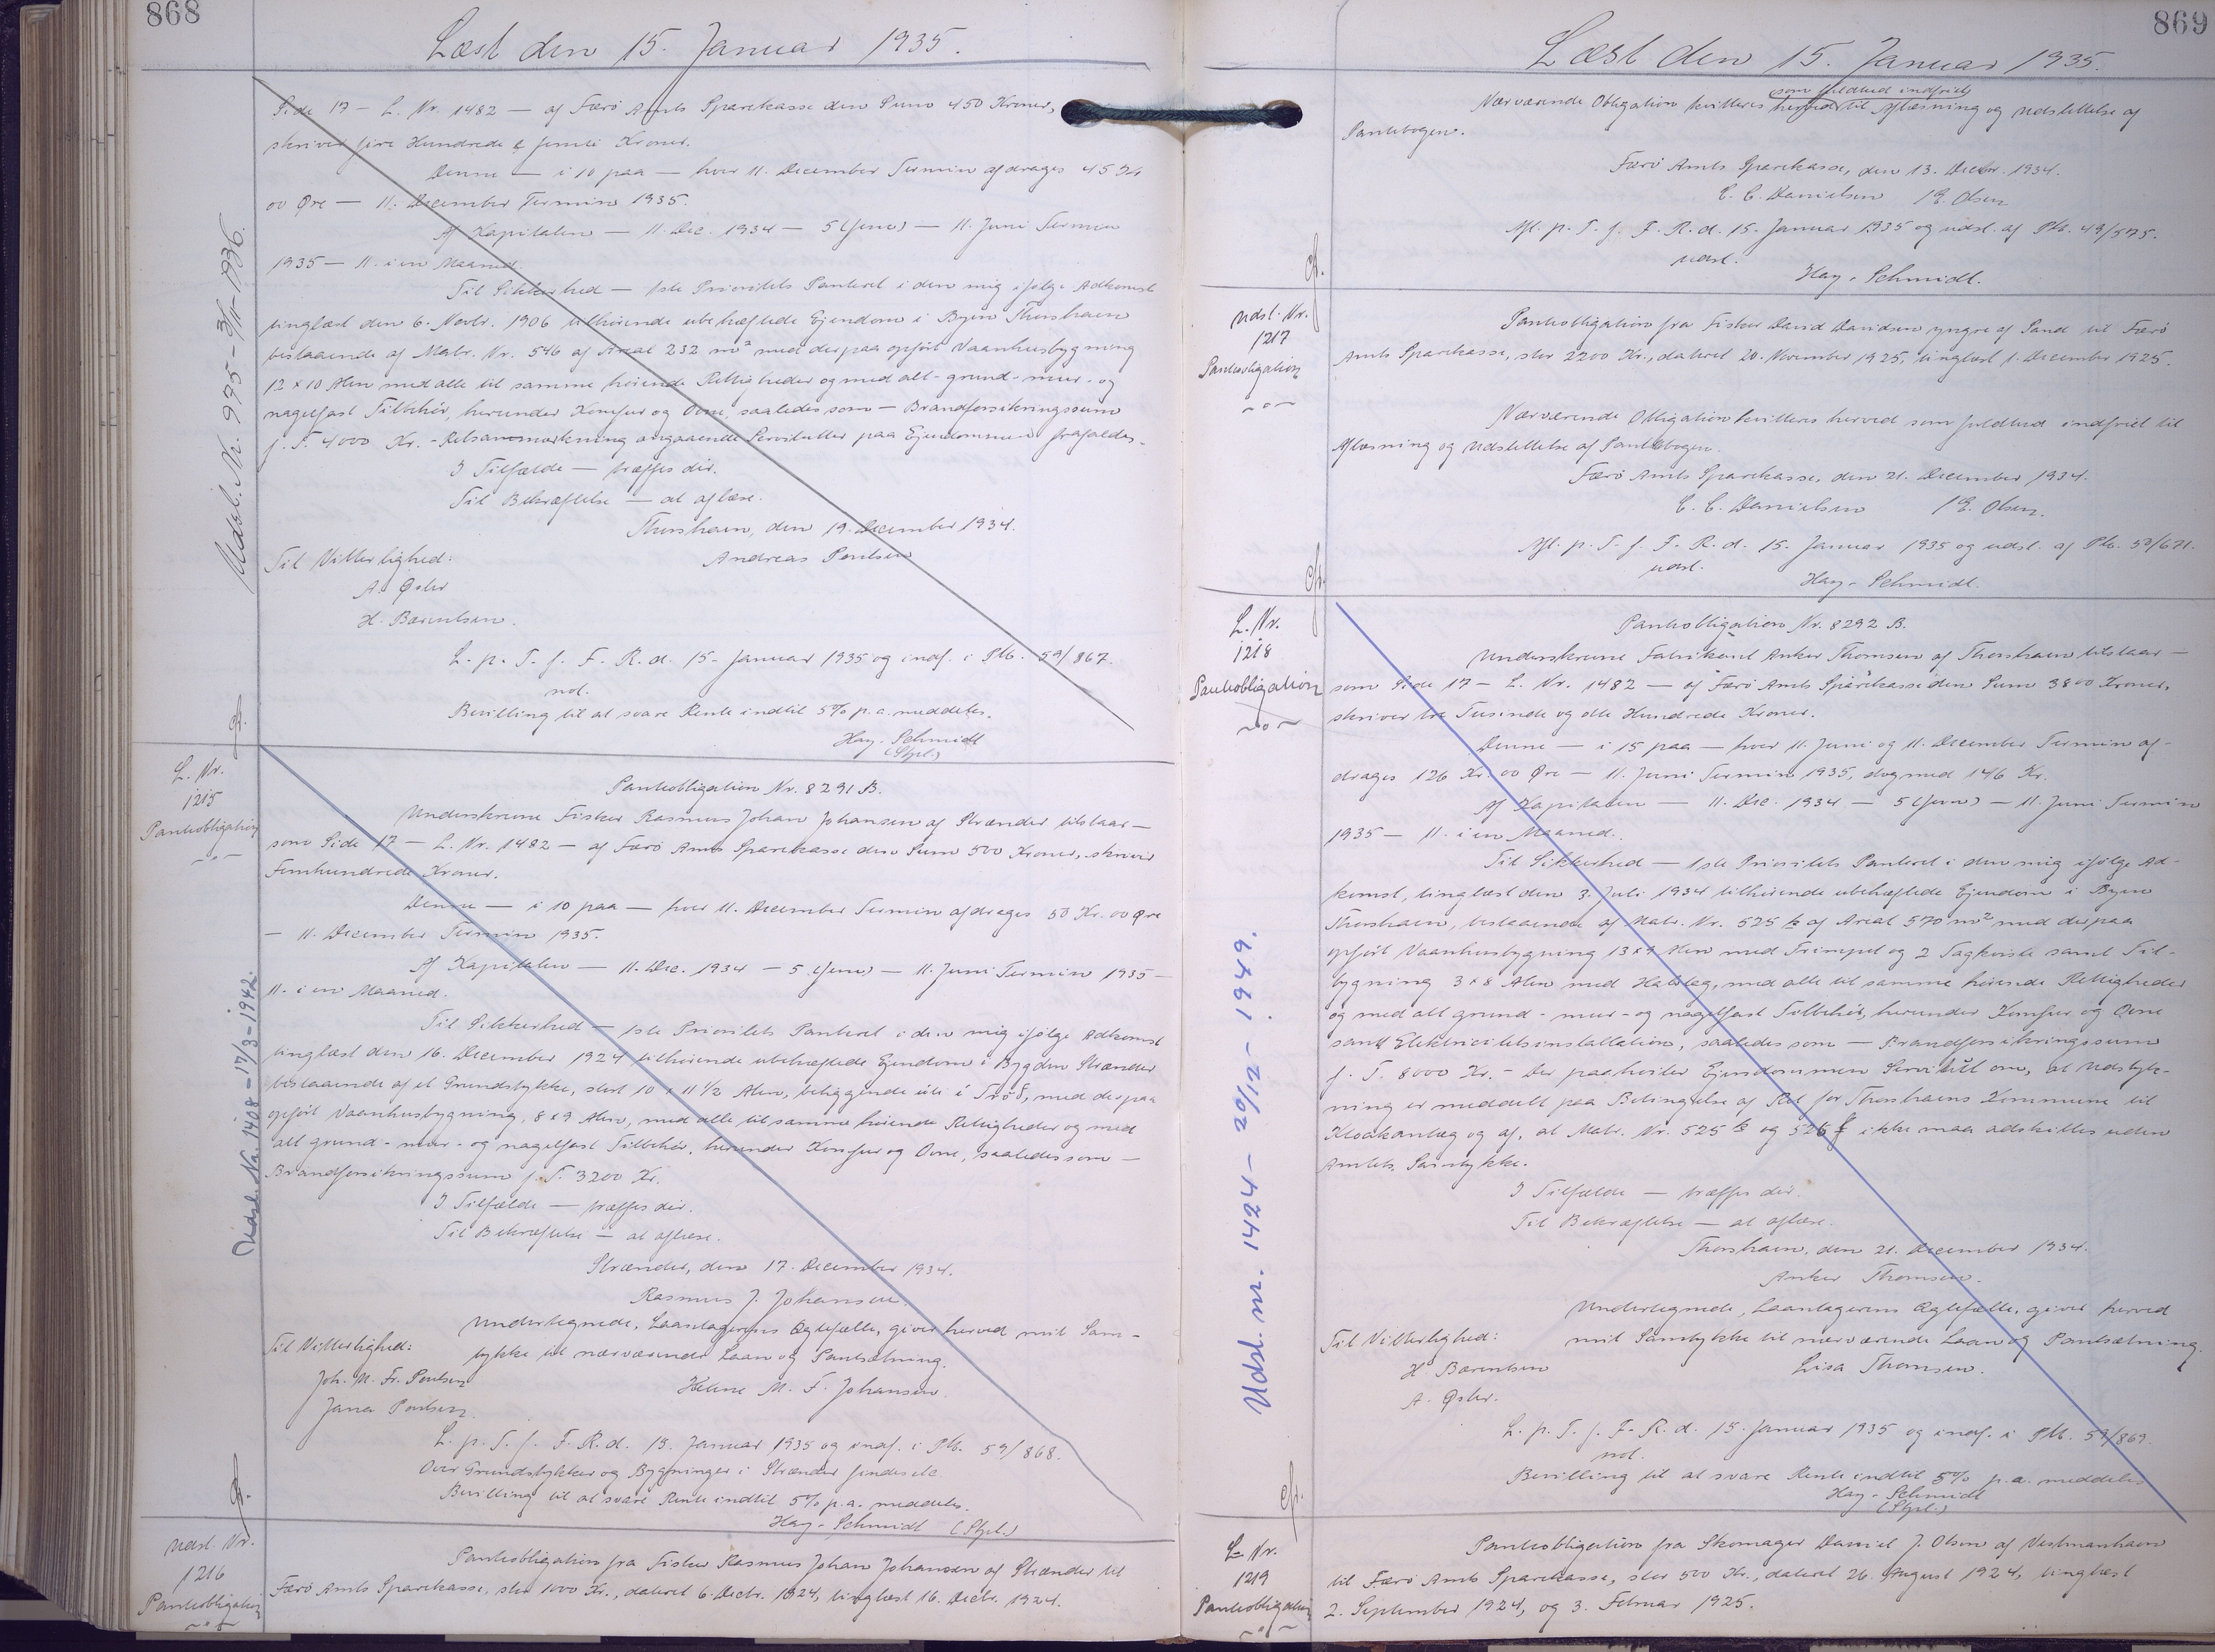 868
Læst den 15. Januar 1935.
Side 17 — L. Nr. 1482 — af Færø Amts Sparekasse den Sum 450 Kroner,
skriver fire Hundrede & femti Kroner.
Denne — i 10 paa — hver 11. December Termin afdrages 45 Kr
00 Øre — 11. December Termin 1935.
Af Kapitalen — 11. Dec. 1934 — 5 (fem) — 11. Juni Termin
1935 — 11. i en Maaned.
Til Sikkerhed — 1ste Prioritets Panteret i den mig ifølge Adkomst
tinglæst den 6. Novbr. 1906 tilhørende ubehæftede Ejendom i Byen Thorshavn
bestaaende af Matr. Nr. 546 af Areal 232 m² med derpaa opført Vaanhusbygning
12 x 10 Alen med alle til samme hørende Rettigheder og med alt - grund - mur - og
nagelfast Tilbehør, herunder Komfur og Ovne, saaledes som — Brandforsikringssum
p. T. 4000 Kr. - Retsanmærkning angaaende Servitutter paa Ejendommen frafaldes.
I Tilfælde — træffes der.
Til Bekræftelse — at aflæse.
Thorshavn, den 19. December 1934.
Andreas Poulsen
Til Vitterlighed:
A. Øster
H. Bærentsen.
L. p. T. f. F. R. d. 15. Januar 1935 og indf. i Ptb. 59/867.
not.
Bevilling til at svare Rente indtil 5% p. a. meddeles.
Hay-Schmidt
(Stpl.)
Udsl. Nr. 975 - 3/11-1936.
L. Nr.
1215
Pantobligation
Pantobligation Nr. 8291 B.
Underskrevne Fisker Rasmus Johan Johansen af Strænder tilstaar —
som Side 17 — L. Nr. 1482 — af Færø Amts Sparekasse den Sum 500 Kroner, skriver
Femhundrede Kroner.
Denne — i 10 paa — hver 11. December Termin afdrages 50 Kr. 00 Øre
— 11. December Termin 1935.
Af Kapitalen — 11. Dec. 1934 — 5 (fem) — 11. Juni Termin 1935 —
11. i en Maaned.
Til Sikkerhed — 1ste Prioritets Panteret i den mig ifølge Adkomst
tinglæst den 16. December 1924 tilhørende ubehæftede Ejendom i Bygden Strænder
bestaaende af et Grundstykke, stort 10 x 11 1/2 Alen, beliggende úti í Trøð, med derpaa
opført Vaanhusbygning, 8 x 9 Alen, med alle til samme hørende Rettigheder og med
alt grund - mur - og nagelfast Tilbehør, herunder Komfur og Ovne, saaledes som —
Brandforsikringssum p. T. 3200 Kr.
I Tilfælde — træffes der.
Til Bekræftelse — at aflæse.
Strænder, den 17. December 1934.
Rasmus J. Johansen.
Undertegnede, Laantagerens Ægtefælle, giver herved mit Sam-
tykke til nærværende Laan og Pantsætning.
Helene M. F. Johansen.
Til Vitterlighed:
Joh. M. Fr. Poulsen
Jana Poulsen
L. p. T. f. F. R. d. 15. Januar 1935 og indf. i Ptb. 59/868.
Over Grundstykker og Bygninger i Strænder findes etc.
Bevilling til at svare Rente indtil 5% p. a. meddeles.
Hay-Schmidt (Stpl.)
Udsl. Nr. 1408 - 17/3-1942.
Udsl. Nr.
1216
Pantobligation
Pantobligation fra Fisker Rasmus Johan Johansen af Strænder til
Færø Amts Sparekasse, stor 1000 Kr., dateret 6. Decbr. 1924, tinglæst 16. Decbr. 1924.
869
Læst den 15. Januar 1935.
som fuldtud indfriet
Nærværende Obligation kvitteres herved til Aflæsning og Udslettelse af
Pantebogen.
Færø Amts Sparekasse, den 13. Decbr. 1934.
C. C. Danielsen / E. Olsen
Afl. p. T. f. F. R. d. 15. Januar 1935 og udsl. af Ptb. 49/575.
udsl.
Hay-Schmidt.
Udsl. Nr.
1217
Pantobligation
Pantobligation fra Fisker David Davidsen yngre af Sand til Færø
Amts Sparekasse, stor 2200 Kr., dateret 20. November 1925, tinglæst 1. December 1925.
Nærværende Obligation kvitteres herved som fuldtud indfriet til
Aflæsning og Udslettelse af Pantebogen.
Færø Amts Sparekasse, den 21. December 1934.
C. C. Danielsen / E. Olsen.
Afl. p. T. f. F. R. d. 15. Januar 1935 og udsl. af Ptb. 50/671.
udsl.
Hay-Schmidt.
L. Nr.
1218
Pantobligation
Pantobligation Nr. 8292 B.
Underskrevne Fabrikant Anker Thomsen af Thorshavn tilstaar —
som Side 17 — L. Nr. 1482 — af Færø Amts Sparekasse den Sum 3800 Kroner,
skriver tre Tusinde og otte Hundrede Kroner.
Denne — i 15 paa — hver 11. Juni og 11. December Termin af-
drages 126 Kr. 00 Øre — 11. Juni Termin 1935, dog med 146 Kr.
Af Kapitalen — 11. Dec. 1934 — 5 (fem) — 11. Juni Termin
1935 — 11. i en Maaned.
Til Sikkerhed — 1ste Prioritets Panteret i den mig ifølge Ad-
komst, tinglæst den 3. Juli 1934 tilhørende ubehæftede Ejendom i Byen
Thorshavn, bestaaende af Matr. Nr. 525 b af Areal 570 m² med derpaa
opført Vaanhusbygning 13 x 9 Alen med Trempel og 2 Tagkviste samt Til-
bygning 3 x 8 Alen med Halvtag, med alle til samme hørende Rettigheder
og med alt grund - mur - og nagelfast Tilbehør, herunder Komfur og Ovne
samt Elektricitetsinstallation, saaledes som — Brandforsikringssum
p. T. 8000 Kr. - Der paahviler Ejendommen Servitut om, at Udstyk-
ning er meddelt paa Betingelse af Ret for Thorshavns Kommune til
Kloakanlæg og af, at Matr. Nr. 525 b og 526 f ikke maa adskilles uden
Amtets Samtykke.
I Tilfælde — træffes der.
Til Bekræftelse — at aflæse.
Thorshavn, den 21. December 1934.
Anker Thomsen.
Undertegnede, Laantagerens Ægtefælle, giver herved
mit Samtykke til nærværende Laan og Pantsætning.
Lisa Thomsen.
Til Vitterlighed:
H Bærentsen
A. Øster.
L. p. T. f. F. R. d. 15. Januar 1935 og indf. i Ptb. 59/869.
not.
Bevilling til at svare Rente indtil 5% p. a. meddeles
Hay-Schmidt
(Stpl.)
Udsl. nr. 1424 - 20/12 - 1949.
L. Nr.
1219
Pantobligation
Pantobligation fra Skomager Daniel J. Olsen af Vestmanhavn
til Færø Amts Sparekasse, stor 500 Kr., dateret 26. August 1924, tinglæst
2. September 1924, og 3. Februar 1925.